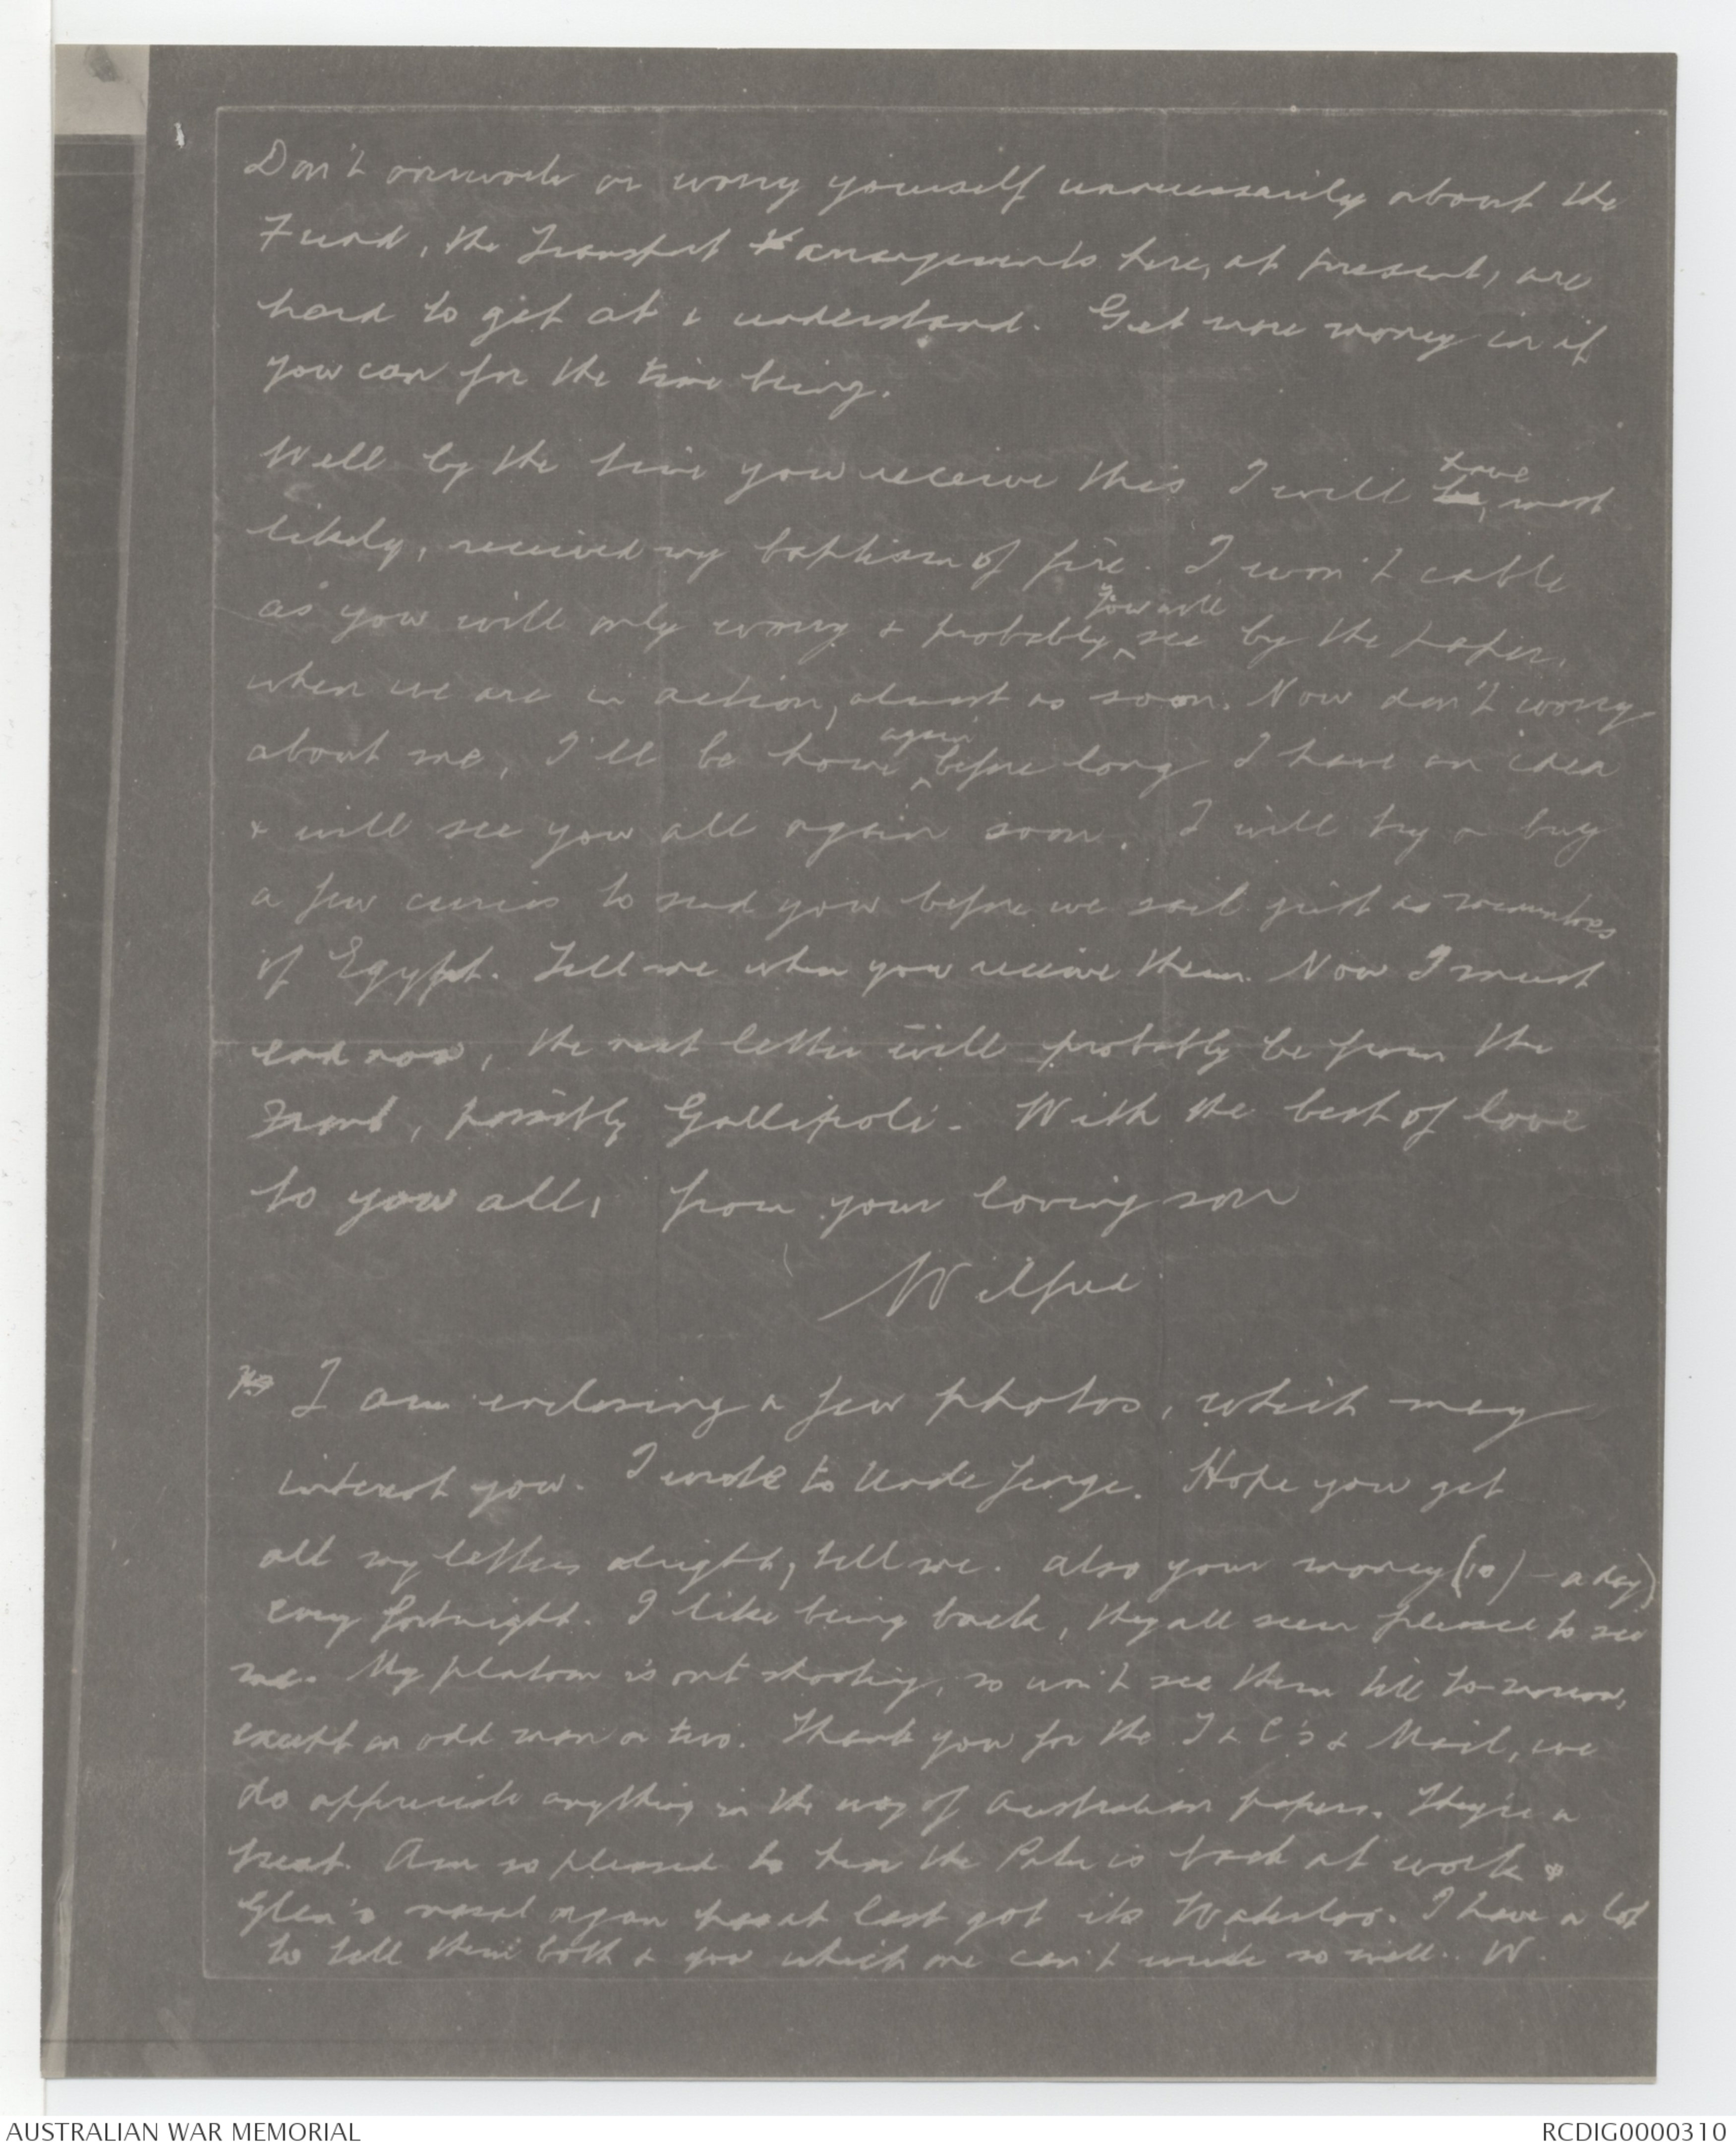 Don't overwork or worry yourself unnecessarily about the
Fund, the Transport arrangements here, at present, are
hard to get at & understand. Get more money in if
you can for the time being.
Well by the time you receive this I will have, most
likely, received my baptism of fire. I won't cable
as you will only worry & probably you will see by the papers,
when we are in action, almost as soon. Now don't worry
about me, I'll be home again before long I have an idea
& will see you all again soon. I will try & buy
a few curios to send you before we sail just as mementoes
of Egypt. Tell me when you receive them. Now I must
end now, the next letter will probably be from the
Front, possibly Gallipoli. With the best of love
to you all, from your loving son
Wilfred
PS I am enclosing a few photos, which may
interest you. I wrote to Uncle George. Hope you get
all my letters alright, tell me. Also your money (10/- a day)
every fortnight. I like being back, they all seem pleased to see
me. My platoon is out shooting, so won't see them till to-morrow,
except an odd man or two. Thank you for the T & C's & Mail, we
do appreciate anything in the way of Australian papers. They're a
treat. Am so pleased to hear the Pater is back at work &
Glen's nasal organ has at last got its Waterloo. I have a lot
to tell them both & you which one can't write so well. W.
AUSTRALIAN WAR MEMORIAL
RCDIG0000310